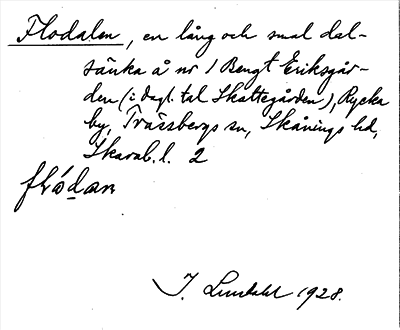 Flodalen, en lång och smal dal-
sänka å nr 1 Bengt Eriksgår-
den (i dagl. tal Skattegården), Rycka
by, Trässbergs sn, Skånings hd,
Skarab. l. 2
flódan
J. Lundahl 1928.